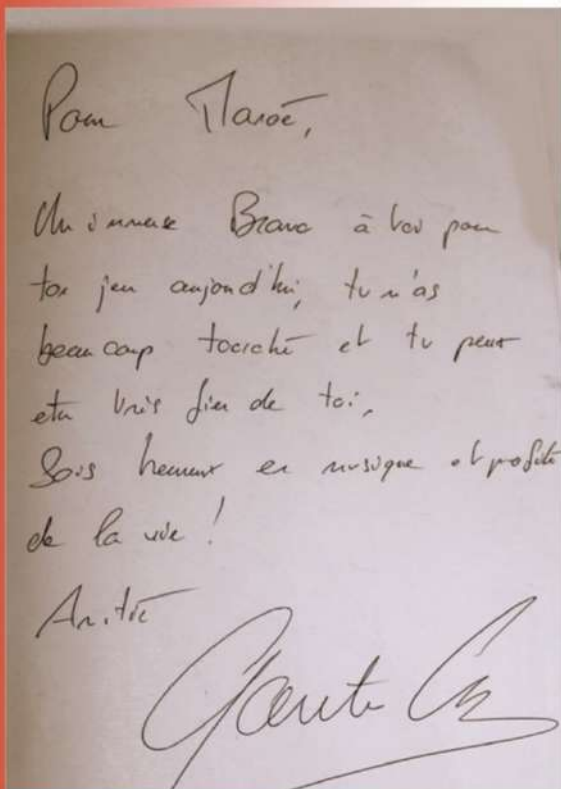 Pour Maroé,
Un immense Bravo à toi pour
ton jeu aujourd'hui, tu m'as
beaucoup touché et tu peux
être très fier de toi,
Sois heureux en musique et profite
de la vie !
Amitié